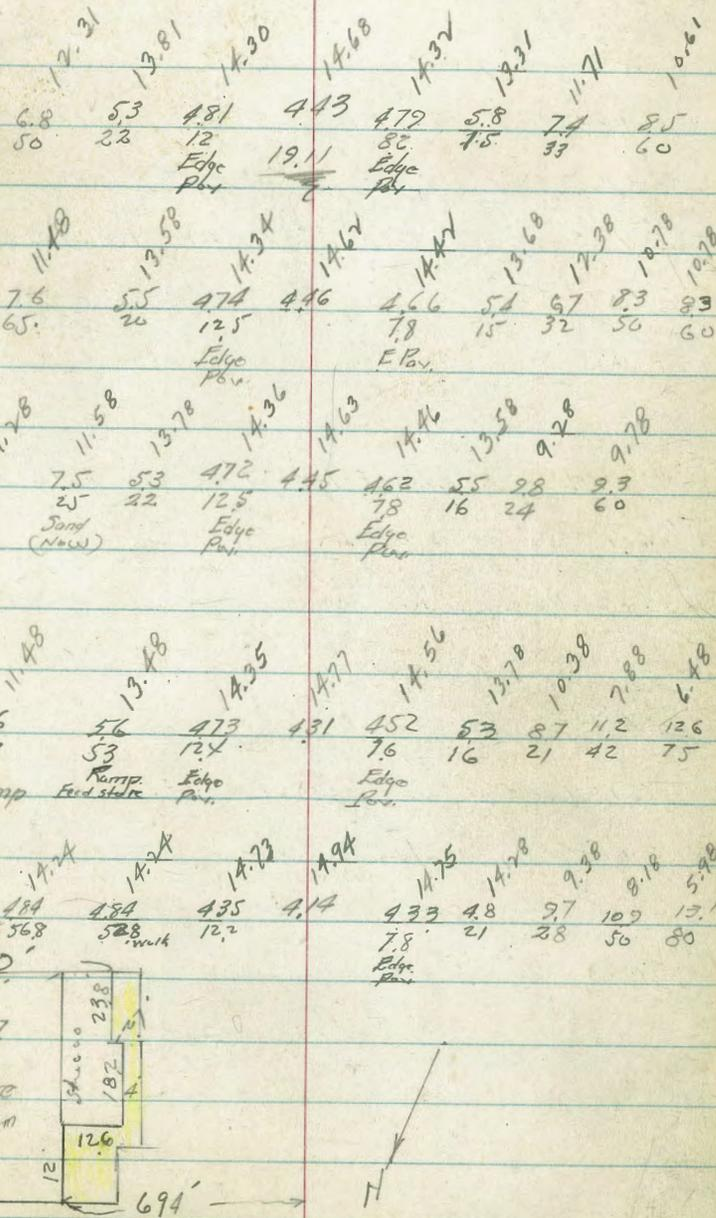 12.31 13.81 14.30 14.68 14.32 13.31 11.71 10.61
6.8 5.3 4.81 4.43 4.79 5.8 7.4 8.5
50 22 12 19.11 82 15 33 60
Edge Edge
Pav. Pav.
11.48 13.58 14.34 14.62 14.42 13.68 12.38 10.78 10.78
7.6 5.5 4.74 4.46 4.66 5.4 6.7 8.3 8.3
65. 20 12.5 7.8 15 32 50 60
Edge E Pav.
Pav.
11.58 13.78 14.36 14.63 14.46 13.58 9.28 9.78
7.5 5.3 4.72 4.45 4.62 5.5 9.8 9.3
25 22 12.5 7.8 16 24 60
Sand Edge Edge
(Now) Pav. Pav.
11.48 13.48 14.35 14.77 14.56 13.78 10.38 7.88 6.48
5.6 4.73 4.31 4.52 5.3 8.7 11.2 12.6
53 12.4 7.6 16 21 42 75
Ramp Edge Edge
Feed store Pav. Pav.
14.24 14.24 14.73 14.94 14.75 14.28 9.38 8.18 5.98
4.84 4.84 4.35 4.14 4.33 4.8 9.7 10.9
56.8 walk 12.2 7.8 21 28 50 80
Edge
Pav.
23.8
Stucco 18.2 4.
12.6
12
69.4'
N